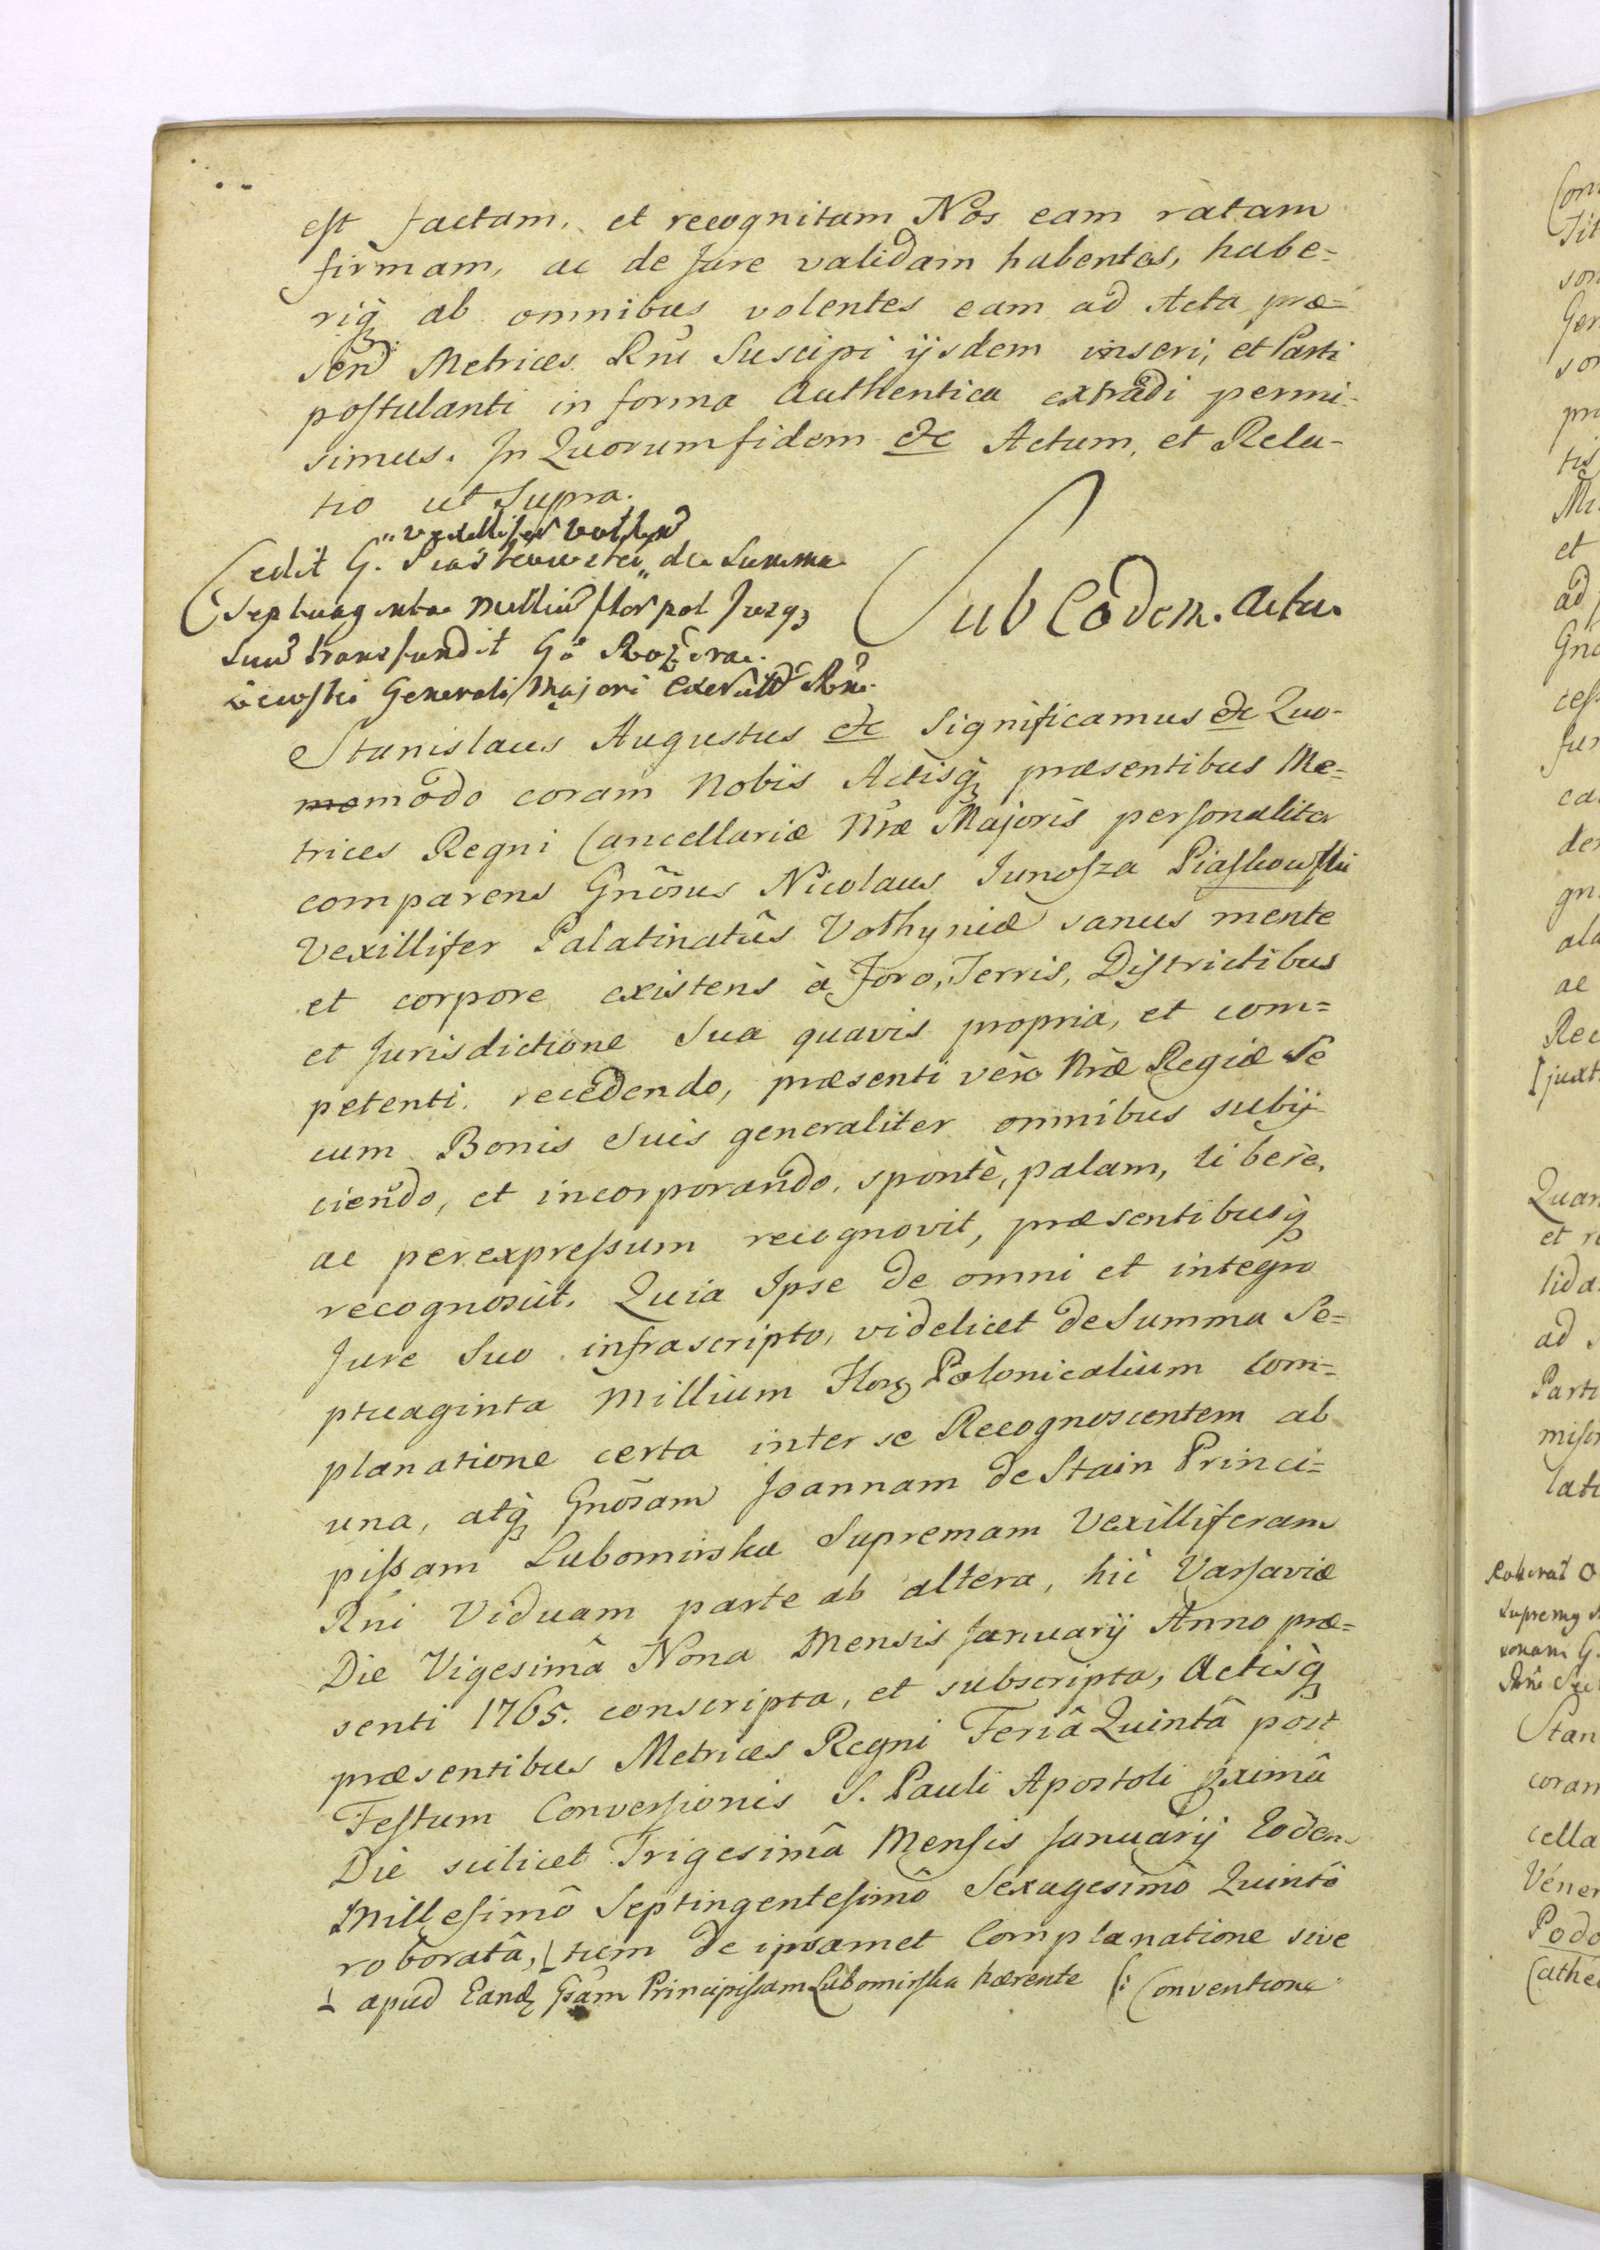 est factam, et recognitam Nos eam ratam
firmam, ac de Jure validam habentes, habe=
riq̃ ab omnibus volentes eam ad Acta præ=
send Metrices Rñi Suscipi ijsdem inseri, et Parti
postulanti in forma Authentica extradi permi-
simus. In Quorum fidem etc Actum, et Rela-
tio ut Supra.
vexillifer Volhyn
Cedit G. Piaskowski de Summa
Septuaginta Milliu flor pol Jurq̃
Suu transfundit Go
Generali Majori Exercitu Rñi
Sub Eodem. Actu.
Stanislaus Augustus etc Significamus etc Quo-
momodo coram Nobis Actisq̃ præsentibus Me=
trices Regni Cancellariæ Nræ Majoris personaliter
comparens Gnõsus Nicolaus Junosza Piaskowski
Vexillifer Palatinatûs Volhyniæ sanus mente
et corpore existens à Foro, Terris, Districtibus
et Jurisdictione Sua quavis propria, et com=
petenti recedendo, præsenti verò Nræ Regiæ Se
cum Bonis Suis generaliter omnibus subij-
ciendo, et incorporando, sponte, palam, libere,
ac per expressum recognovit, præsentibusq̃
recognoscit, Quia Ipse de omni et integro
Jure Suo infrascripto, videlicet de Summa Se=
ptuaginta Millium Flor Polonicalium Com=
planatione certa inter se Recognoscentem ab
una, atq̃ Gnõsam Joannam de Stain Princi=
pissam Lubomirska Supremam Vexilliferam
Rñi Viduam parte ab altera, hic Varsaviæ
Die Vigesimâ Nona Mensis Januarij Anno præ=
senti 1765. conscripta, et subscripta, Actisq̃
præsentibus Metrices Regni Feriâ Quintâ post
Festum Conversionis S. Pauli Apostoli pximâ
Die scilicet Trigesimâ Mensis Januarij Eodem
Millesimô Septingentesimô Sexagesimô Quintô
roboratâ, tum de ipsamet Complanatione sive
apud Eand Gsam Principissam Lubomirska hærente (: Conventione